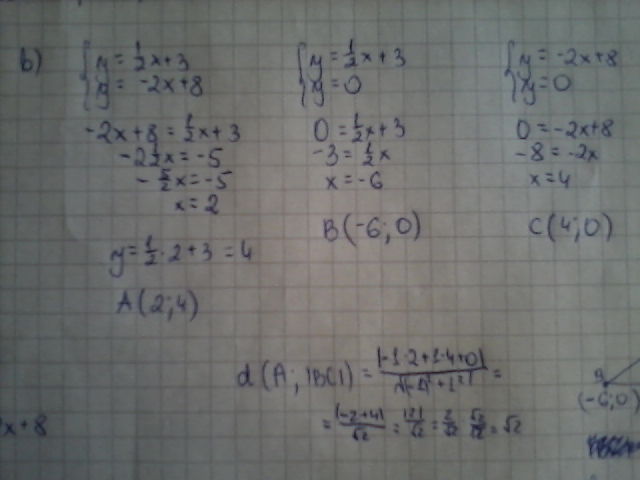 b)
{y = 1/2x + 3
y = -2x + 8
-2x + 8 = 1/2x + 3
-2 1/2x = -5
-5/2x = -5
x = 2
y = 1/2 · 2 + 3 = 4
A(2;4)
{y = 1/2x + 3
y = 0
0 = 1/2x + 3
-3 = 1/2x
x = -6
B(-6;0)
{y = -2x + 8
y = 0
0 = -2x + 8
-8 = -2x
x = 4
C(4;0)
d(A; |BC|) = |-1·2+1·4+0| / √((-1)²+1²) =
= |-2+4|/√2 = |2|/√2 = 2/√2 · √2/√2 = √2
B
(-6;0)
x + 8